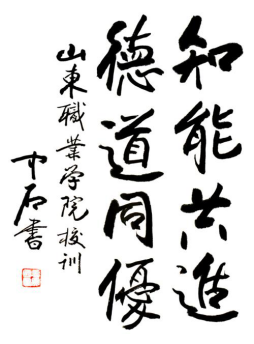 知能共進
德道同優
山東職業学院校训
中石書